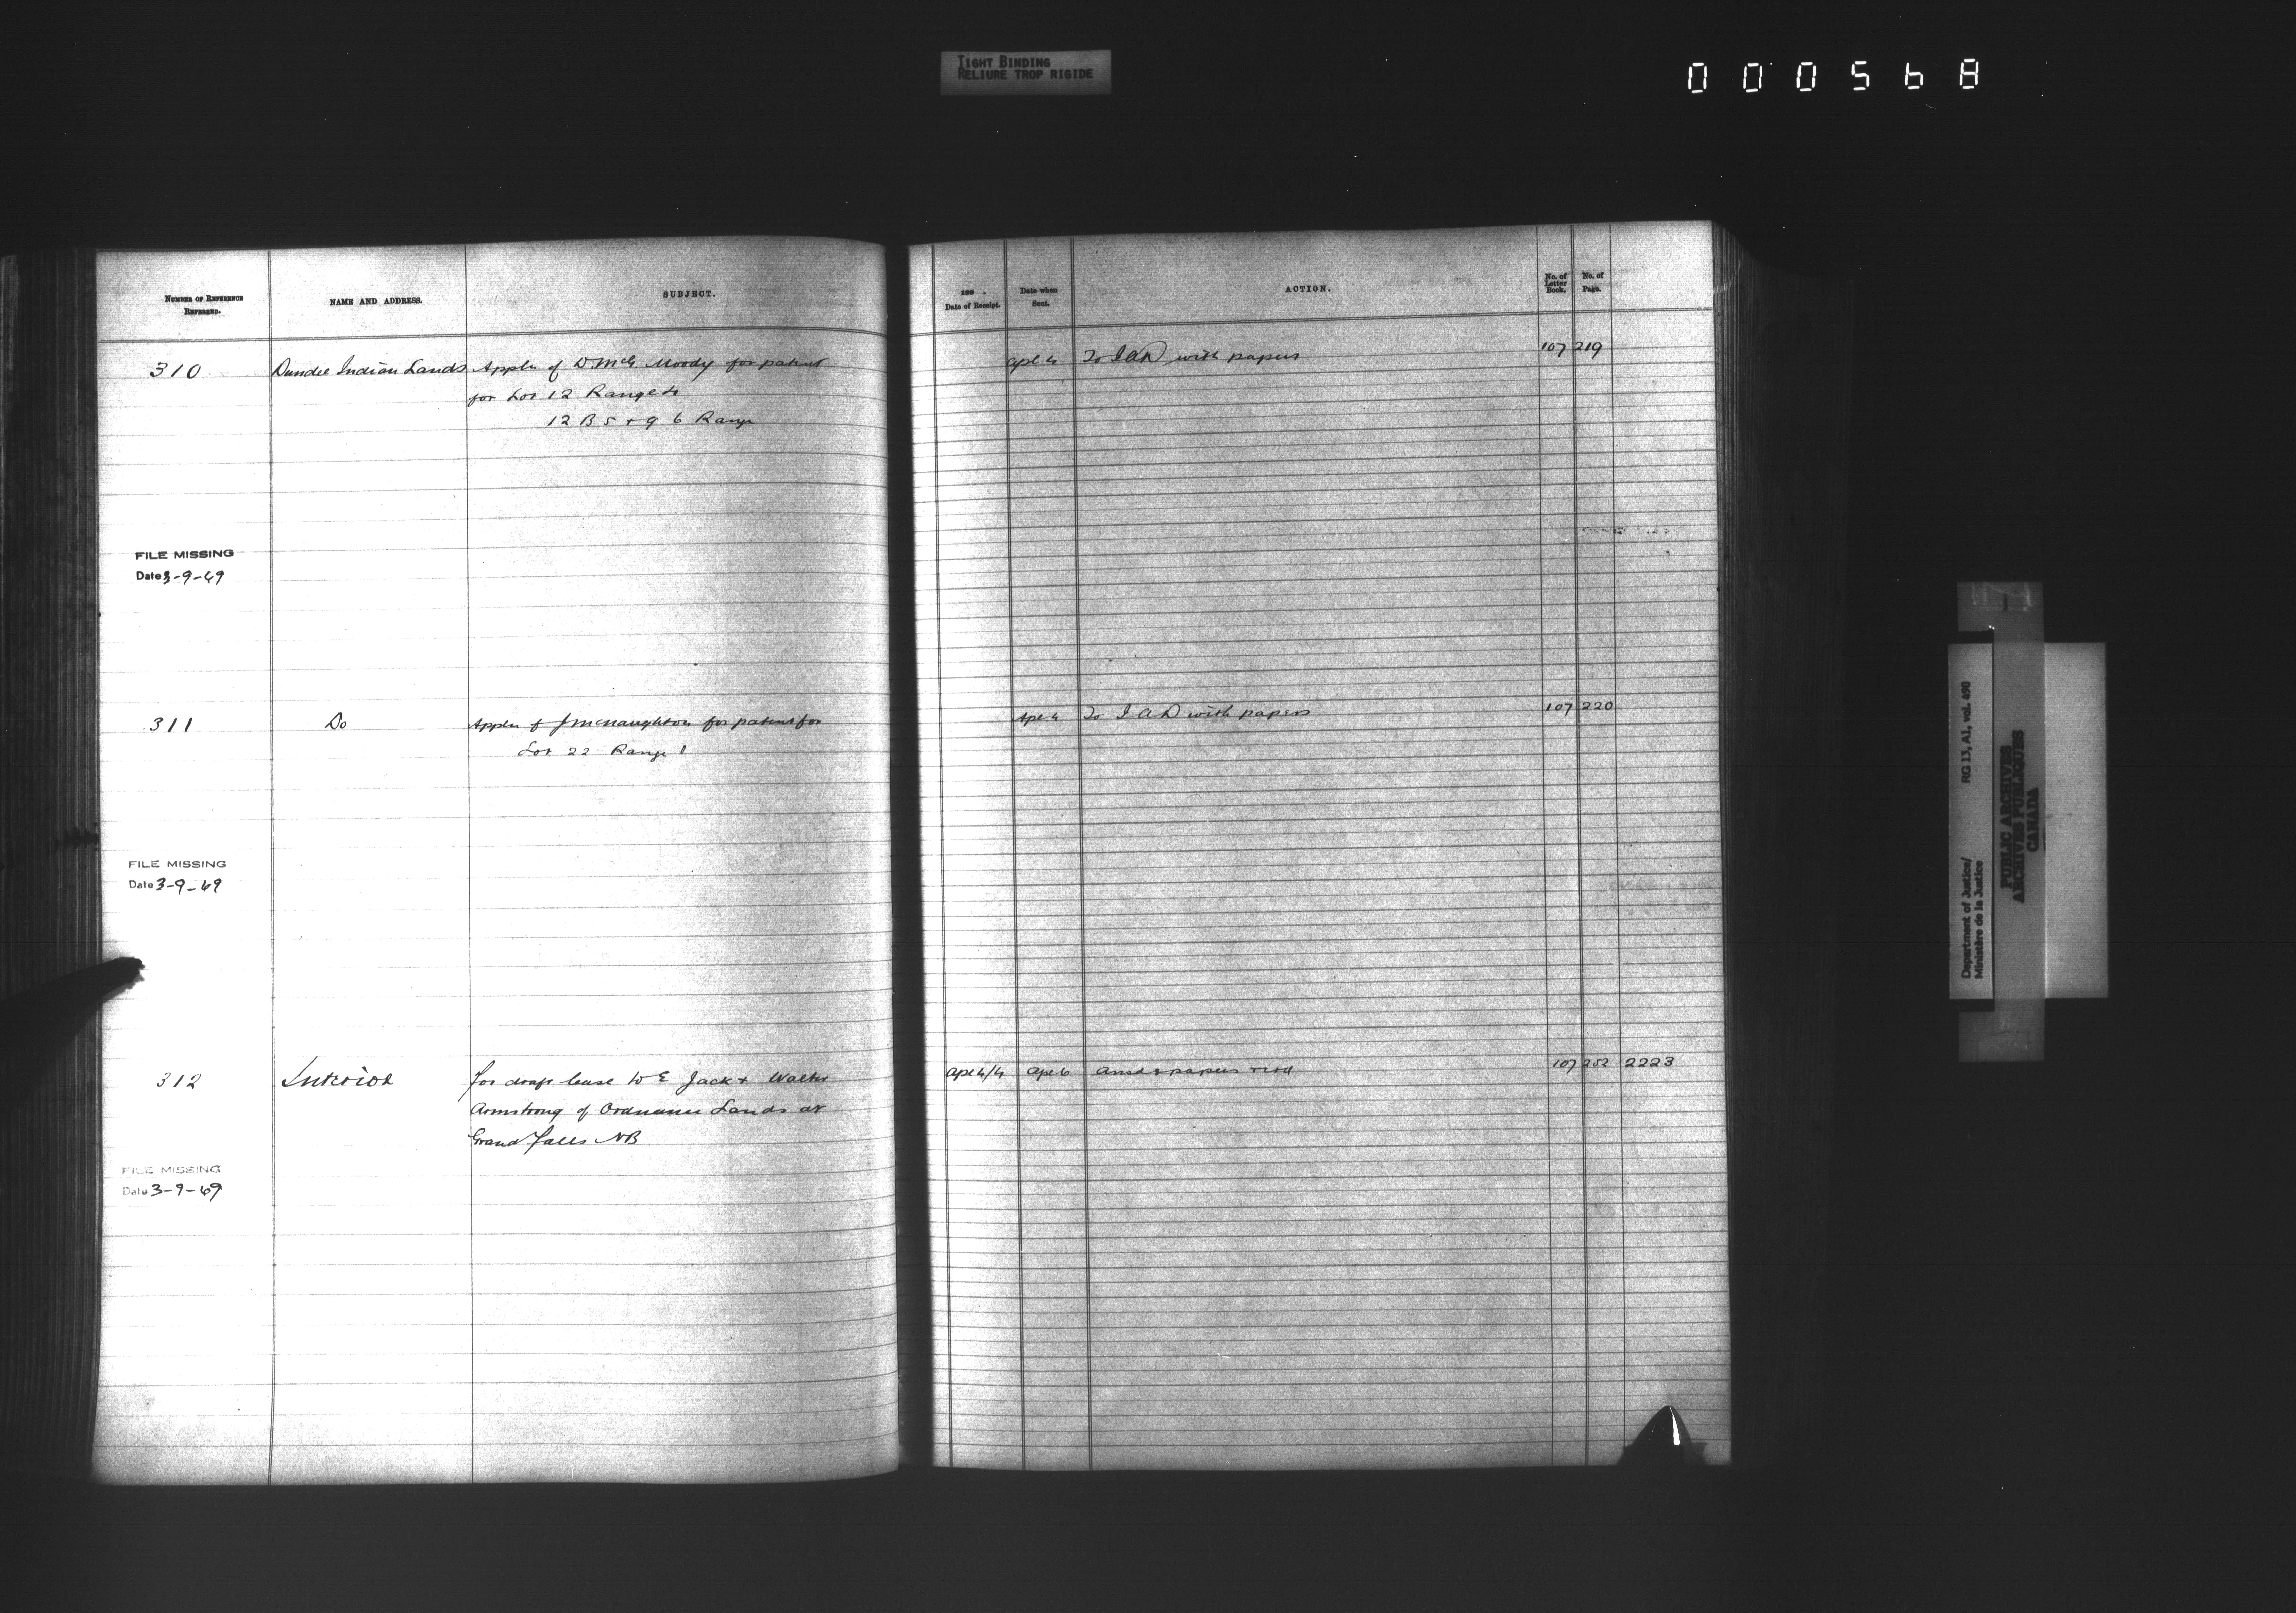 TIGHT BINDING
RELIURE TROP RIGIDE
000568
NUMBER OF REFERENCE
REFERRED.
NAME AND ADDRESS.
SUBJECT.
189 .
Date of Receipt.
Date when
Sent.
ACTION.
No. of
Letter
Book.
No. of
Page.
310 Dundee Indian Lands Appln of D. McG. Moody for patent Apl 4 To I A D with papers 107 219
for Lot 12 Range 4
12 B 5 + 9 6 Range
FILE MISSING
Date 3-9-69
311 Do Appln of J McNaughton for patent for Apl 4 To I A D with papers 107 220
Lot 22 Range 1
FILE MISSING
Date 3-9-69
312 Interior for draft lease to E Jack + Walter Apl 4/4 Apl 6 Ansd & papers retd 107 252 2223
Armstrong of Ordnance Lands at
Grand Falls NB
FILE MISSING
Date 3-9-69
Department of Justice/ RG 13, A1, vol. 490
Ministère de la Justice
PUBLIC ARCHIVES
ARCHIVES PUBLIQUES
CANADA